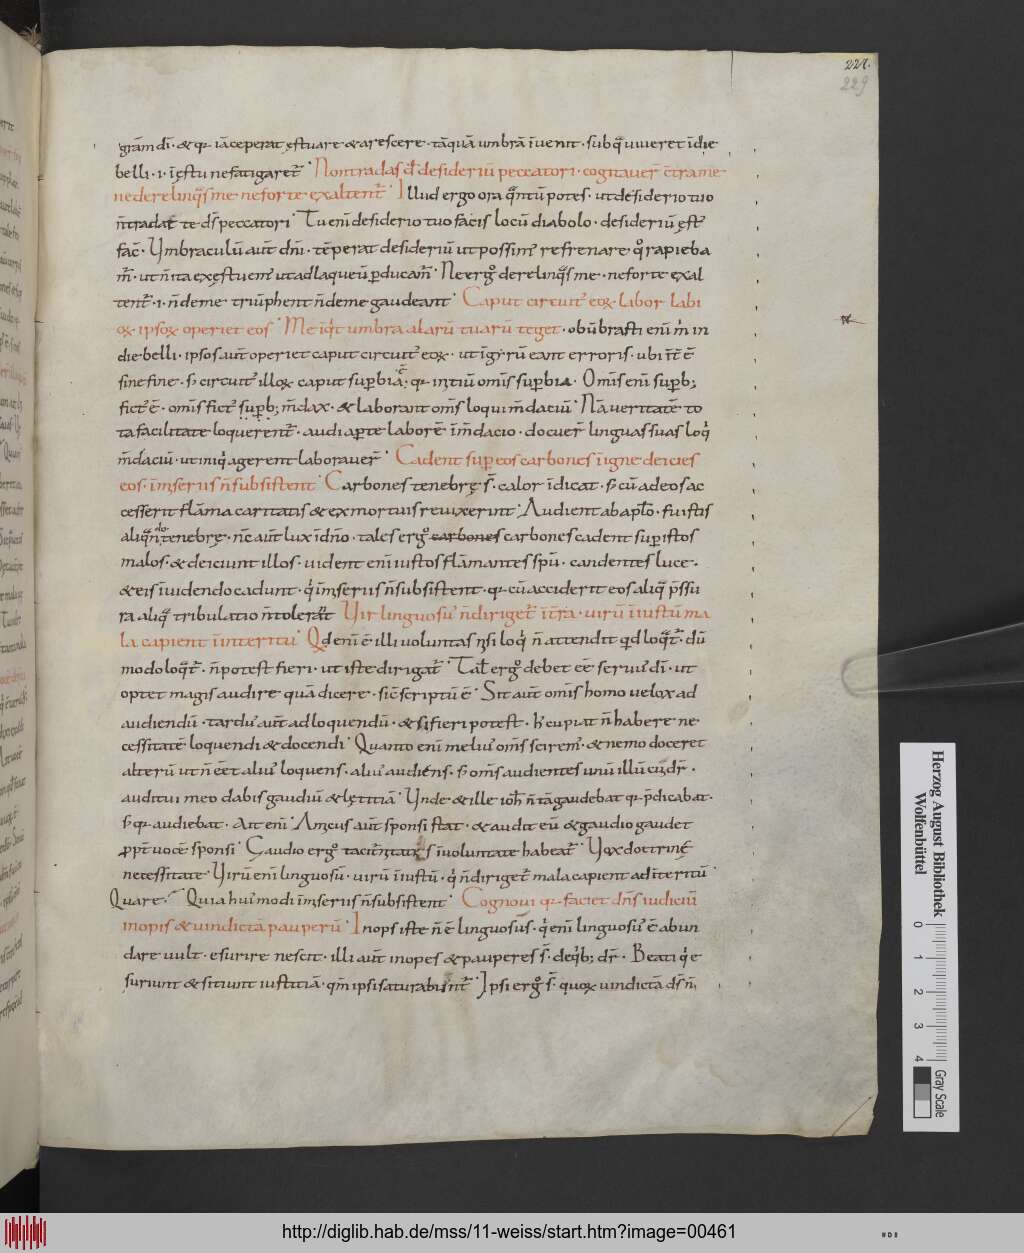 227.
229
gram̄ di· & qr iaceperat ęstuare & arescere· tāquā umbrā īuenit· sub q̄ uiueret ī die
belli· ·i· ī ęstu ne fatigaret̄· Non tradas dn̄e desiderium̄ peccatori· cogitauer̄ c̄tra me
ne derelinq̄s me ne forte exaltent̄· Illud ergo ora q̄ntū potes· ut desiderio tuo
n̄ tradat te dn̄s peccatori· Tu eni desiderio tuo facis locū diabolo· desideriū ęst
fac̄· Vmbraculū aut̄ dn̄i· tēperat desideriū ut possim' refrenare· quo rapieba
m̄· ut n̄ ita exęstuem' ut ad laqueū ꝑducam̄· Ne ergo derelinq̄s me· ne forte exal
tent̄· ·i· n̄ de me triūphent n̄ de me gaudeant· Caput circuit' eoꝝ· labor labi
oꝝ ipsoꝝ operiet eos· Me inq̇t umbra alarū tuarū teget· obūbrasti eni m̄ in
die belli· ipsos aut̄ operiet caput circuit' eoꝝ· ut ī gyrū eant erroris· ubi it̄ ē
sine fine· s; circuit' illoꝝ caput suꝑbia ē· qr intiū om̄is suꝑbia· Om̄is eni suꝑb;
fict' ē· om̄is fict' suꝑb; m̄dax· & laborant om̄s loqui m̄daciū· Nā ueritatē to
ta facilitate loquerent̄· audi aꝑte laborē ī m̄dacio· docuer̄ linguas suas loq̇
m̄daciū· ut iniq̇ agerent laborauer̄· Cadent suꝑ eos carbones ī igne deicies
eos· ī miseriis n̄ subsistent· Carbones tenebrę s̄· calor īdicat· s; cū ad eos ac
cesserit flāma caritatis & ex mortuis reuixerint· Audient ab apl̄o· fuistis
aliqn̄do tenebrę· n̄c aut̄ lux ī dn̄o· tales ergo carbones carbones cadent suꝑ istos
malos· & deiciunt illos· uident eni iustos flāmantes spū· candentes luce·
& eis īuidendo cadunt· q̇ ī miseriis n̄ subsistent· qr cū acciderit eos aliq̄ p̄ssu
ra aliq̄ tribulatio n̄ tolerat̄· Vir linguosus' n̄ diriget̄ ī t̄ra· uirū īiustū ma
la capient ī interitu· Qd eni ē illi uoluntas nisi loq̇ n̄ attendit qd loq̄t̄· dū
modo loq̄t̄· n̄ potest fieri· ut iste dirigat̄· Tal' ergo debet ēē seruus' di· ut
optet magis audire quā dicere· sic̄ scriptū ē· Sit aut̄ om̄is homo uelox ad
audiendū· tardus' aut̄ ad loquendū· & si fieri potest· h̄ cupiat n̄ habere ne
cessitatē loquendi & docendi· Quanto eni melius' om̄s scirem'· & nemo doceret
alterū ut n̄ ēēt alius' loquens· alius' audiens· s; om̄s audientes unū illū cui dr̄·
auditui meo dabis gaudiū & lętitiā· Vnde & ille ioh̄ n̄ tā gaudebat qr p̄dicabat·
s; qr audiebat· Ait eni· Amicus aut̄ sponsi stat· & audit eū & gaudio gaudet
ꝓpt̄ uocē sponsi· Gaudio ergo taciturnitatis īuoluntate habeat̄· Vox doctrine ē
necessitate· Virū eni linguosū· uirū īiustū· q̇ n̄ diriget̄ mala capient ad īteritū·
Quare· Quia hui'modi ī miseriis n̄ subsistent· Cognoui qr faciet dn̄s iudiciū
inopis & uindictā pauperū· Inops iste n̄ ē linguosus· q̇ eni linguosus' ē abun
dare uult· esurire nescit· illi aut̄ inopes & pauperes s̄· de q̇b; dr̄· Beati q̇ e
suriunt & sitiunt iustitiā· qm̄ ipsi saturabunt̄· Ipsi ergo s̄· quoꝝ uindictā dn̄s n̄
Herzog August Bibliothek
Wolfenbüttel
0 1 2 3 4
Gray Scale
http://diglib.hab.de/mss/11-weiss/start.htm?image=00461